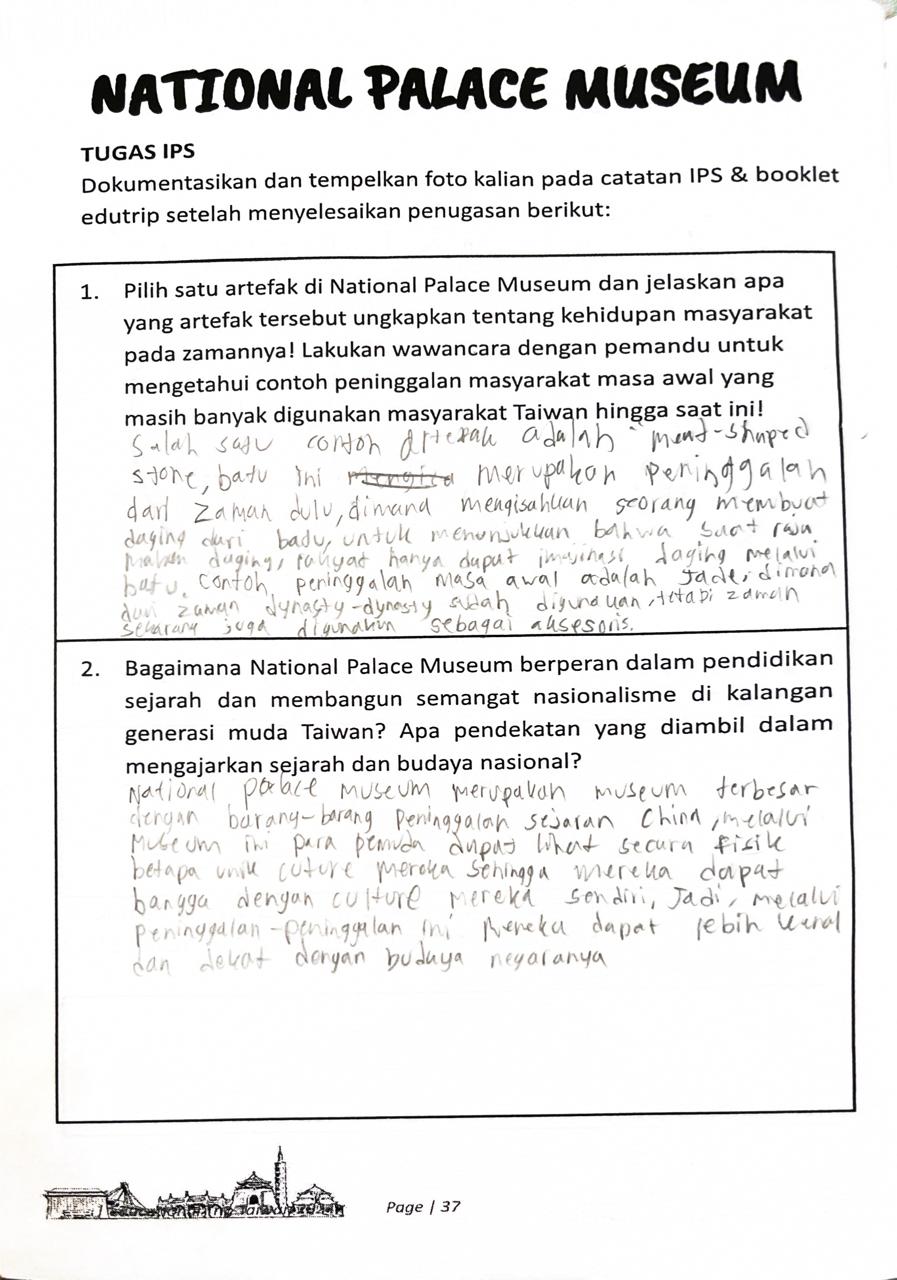 NATIONAL PALACE MUSEUM
TUGAS IPS
Dokumentasikan dan tempelkan foto kalian pada catatan IPS & booklet
edutrip setelah menyelesaikan penugasan berikut:
1. Pilih satu artefak di National Palace Museum dan jelaskan apa
yang artefak tersebut ungkapkan tentang kehidupan masyarakat
pada zamannya! Lakukan wawancara dengan pemandu untuk
mengetahui contoh peninggalan masyarakat masa awal yang
masih banyak digunakan masyarakat Taiwan hingga saat ini!
Salah satu contoh adalah meat-shaped
stone, batu ini merupakan peninggalah
dari zaman dulu, dimana mengisahkan seorang membuat
daging dari batu, untuk menunjukkan bahwa saat raja
makan daging, rakyat hanya dapat imajinasi daging melalui
batu. Contoh peninggalah masa awal adalah Jade, dimana
dari zaman dynasty-dynasty sudah digunakan, tetapi zaman
sekarang juga digunakan sebagai aksesoris.
2. Bagaimana National Palace Museum berperan dalam pendidikan
sejarah dan membangun semangat nasionalisme di kalangan
generasi muda Taiwan? Apa pendekatan yang diambil dalam
mengajarkan sejarah dan budaya nasional?
National palace museum merupakan museum terbesar
dengan barang-barang peninggalan sejarah China, melalui
museum ini para pemuda dapat lihat secara fisik
betapa unik cuture mereka sehingga mereka dapat
bangga dengan culture mereka sendiri, Jadi, melalui
peninggalan-peninggalan ini mereka dapat lebih kenal
dan dekat dengan budaya negaranya
Page | 37